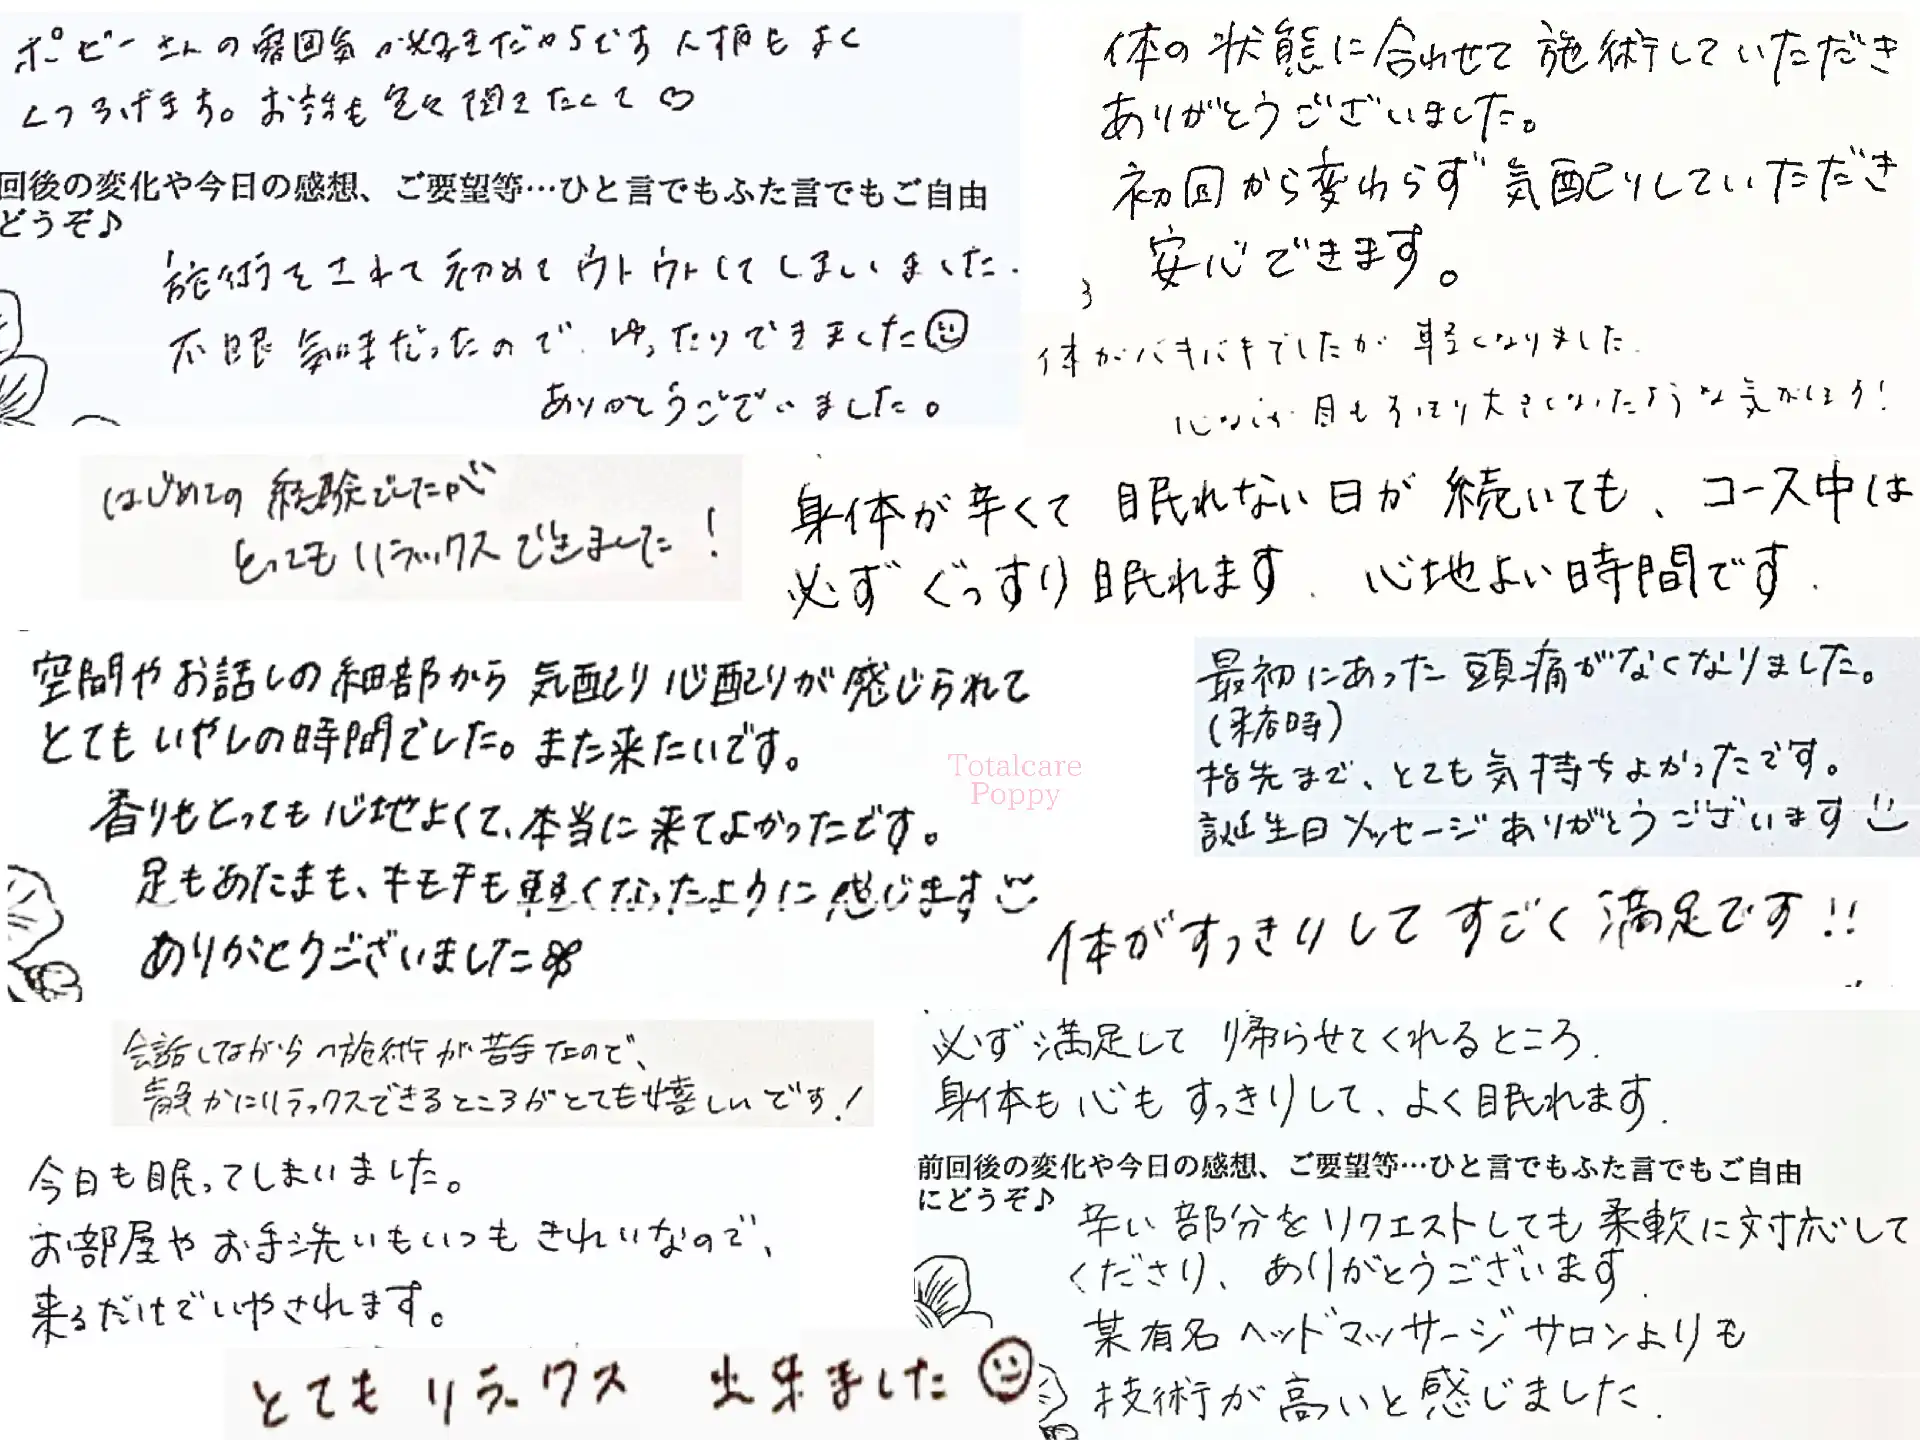 ポピーさんの雰囲気が好きだからです 人柄もよく
くつろげます。お話も色々聞きたくて♡
回後の変化や今日の感想、ご要望等…ひと言でもふた言でもご自由
どうぞ♪
施術をされて初めてウトウトしてしまいました.
不眠気味だったので、ゆったりできました☺
ありがとうございました。
体の状態に合わせて施術していただき
ありがとうございました。
初回から変わらず気配りしていただき
安心できます。
体がバキバキでしたが軽くなりました.
心なしか目もすっきり大きくなったような気がします!
はじめての経験でしたが
とってもリラックスできました!
身体が辛くて眠れない日が続いても、コース中は
必ずぐっすり眠れます. 心地よい時間です.
空間やお話しの細部から気配り心配りが感じられて
とてもいやしの時間でした。また来たいです。
香りもとっても心地よくて、本当に来てよかったです。
足もあたまも、キモチも軽くなったように感じます
ありがとうございました
Totalcare
Poppy
最初にあった頭痛がなくなりました。
(来店時)
指先まで、とても気持ちよかったです。
誕生日メッセージありがとうございます
体がすっきりしてすごく満足です!!
会話しながらの施術が苦手なので、
静かにリラックスできるところがとても嬉しいです!
今日も眠ってしまいました。
お部屋やお手洗いもいつもきれいなので、
来るだけでいやされます。
とてもリラックス 出来ました☺
必ず満足して帰らせてくれるところ.
身体も心もすっきりして、よく眠れます.
前回後の変化や今日の感想、ご要望等…ひと言でもふた言でもご自由
にどうぞ♪
辛い部分をリクエストしても柔軟に対応して
くださり、ありがとうございます.
某有名ヘッドマッサージサロンよりも
技術が高いと感じました.